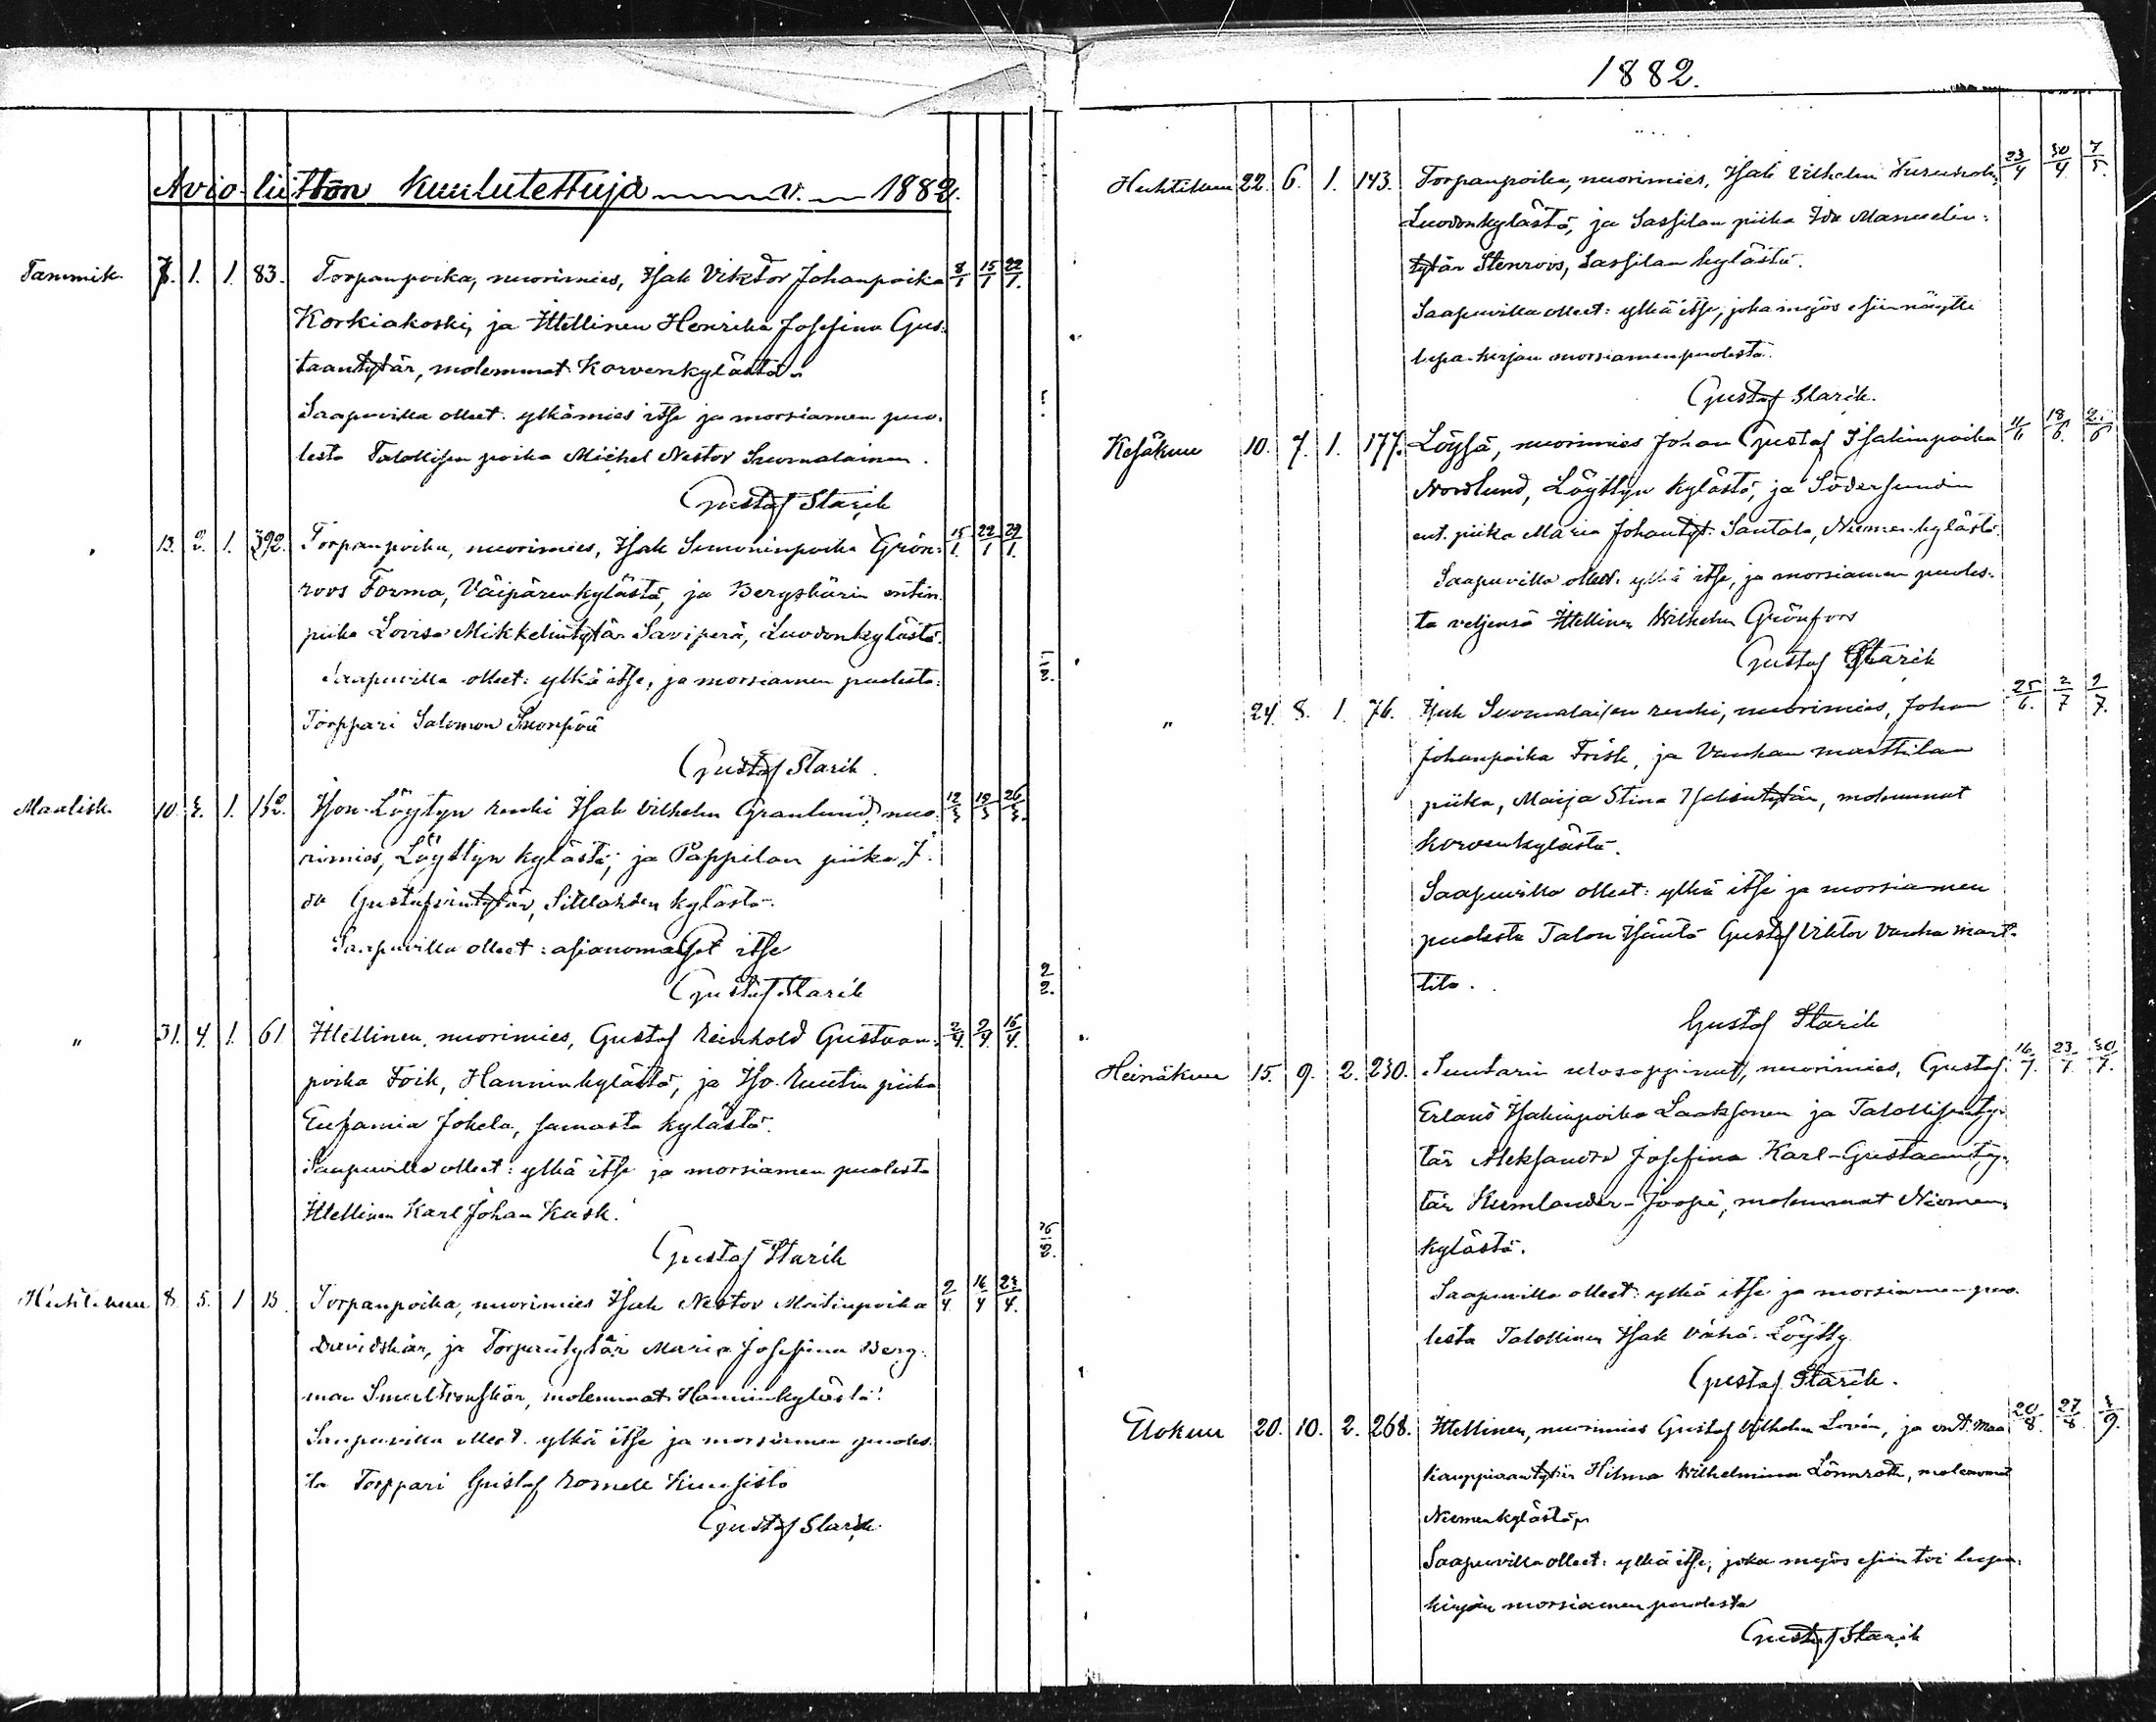 Avio-liittoon kuulutettuja v. 1882.
Tammik. 7. 1. 1. 83. Torpanpoika, nuorimies, Isak Viktor Johanpoika 8/1 15/1 22/1.
Korkiakoski, ja Itellinen Henrika Josefina Gus-
taantytär, molemmat Korvenkylästä.
Saapuvilla olleet: ylkämies itse ja morsiamen puo-
lesta Talollisen poika Michel Nestor Suomalainen.
Gustaf Starik
" 13. 2. 1. 392. Torpanpoika, nuorimies, Isak Simoninpoika Grön- 15/1. 22/1 29/1.
roos Forma, Väipärenkylästä, ja Bergskärin entin.
piika Lovisa Mikkelintytär Saviperä, Luodonkylästä.
Saapuvilla olleet: ylkä itse, ja morsiamen puolesta:
Torppari Salomon
Gustaf Starik.
Maalisk. 10. 3. 1. 152. Ison-Löytyn renki Isak Vilhelm Granlund, nuo- 12/3 19/3 26/3.
rimies, Löyttyn kylästä, ja Pappilan piika I-
da Gustafsintytär, kylästä.
Saapuvilla olleet: asianomaiset itse
Gustaf Starik
" 31. 4. 1. 61. Itellinen, nuorimies, Gustaf Reinhold Gustaan- 2/4. 9/4. 16/4.
poika Foik, Hanninkylästä, ja Iso-Ruutin piika
Eufamia Jokela, samasta kylästä.
Saapuvilla olleet: ylkä itse ja morsiamen puolesta
Itellinen Karl Johan Kask.
Gustaf Starik
Huhtikuu 8. 5. 1 13. Torpanpoika, nuorimies Isak Nestor Matinpoika 9/4. 16/4 23/4.
Davidskär, ja Torparitytär Maria Josefina Berg-
man molemmat Hanninkylästä.
Saapuvilla olleet. ylkä itse ja morsiamen puoles-
ta Torppari Gustaf Romell Kuusisto
Gustaf Starik
1882.
Huhtikuu 22. 6. 1. 143. Torpanpoika, nuorimies, Isak Vilhelm 23/4 30/4 7/5.
Luodonkylästä, ja Sassilan piika Ida Manuelin-
tytär Stenroos, Sassilan kylästä.
Saapuvilla olleet: ylkä itse, joka myös esiin näytti
lupa-kirjan morsiamen puolesta.
Gustaf Starik.
Kesäkuu 10. 7. 1. 177. Löysä, nuorimies Johan Gustaf Isakinpoika 11/6 18/6. 25/6
Nordlund, Löyttyn kylästä, ja Södersundin
ent. piika Maria Johantyt. Santala, Niemenkylästä.
Saapuvilla olleet: ylkä itse, ja morsiamen puoles-
ta veljensä Itellinen Wilhelm Grönfors
Gustaf Starik
" 24. 8. 1. 76. Isak Suomalaisen renki, nuorimies, Johan 25/6. 2/7 9/7.
Johanpoika Frisk, ja Vanhan marttilan
piika, Maija Stina Isakintytär, molemmat
Korvenkylästä.
Saapuvilla olleet: ylkä itse ja morsiamen
puolesta Talon Isäntä Gustaf Viktor Vanha Mart-
tila.
Gustaf Starik
Heinäkuu 15. 9. 2. 230. Suutarin ulosoppinut, nuorimies, Gustaf 16/7. 23/7. 30/7.
Erland Isakinpoika Laaksonen ja Talollisenty-
tär Aleksandra Josefina Karl-Gustaanty-
tär Kumlander-Joopi, molemmat Niemen-
kylästä.
Saapuvilla olleet: ylkä itse ja morsiamen puo-
lesta Talollinen Isak Vähä-Löytty.
Gustaf Starik.
Elokuu 20. 10. 2. 268. Itellinen, nuorimies Gustaf Vilhelm Lovén, ja ent. Maa- 20/8. 27/8 3/9.
kauppiaantytär Hilma Wilhelmina Lönnroth, molemmat
Niemenkylästä.
Saapuvilla olleet: ylkä itse, joka myös esiin toi lupa-
kirjan morsiamen puolesta
Gustaf Starik